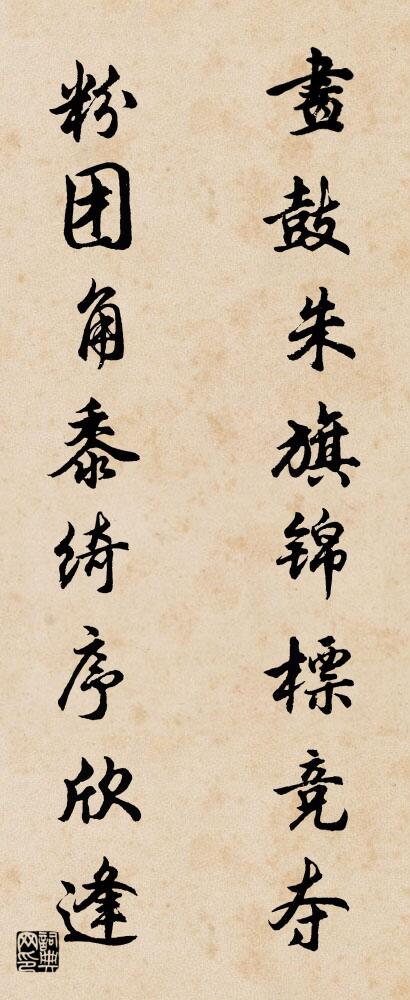 畫鼓朱旗锦標竞夺
粉团角黍绮序欣逢
詞典网印